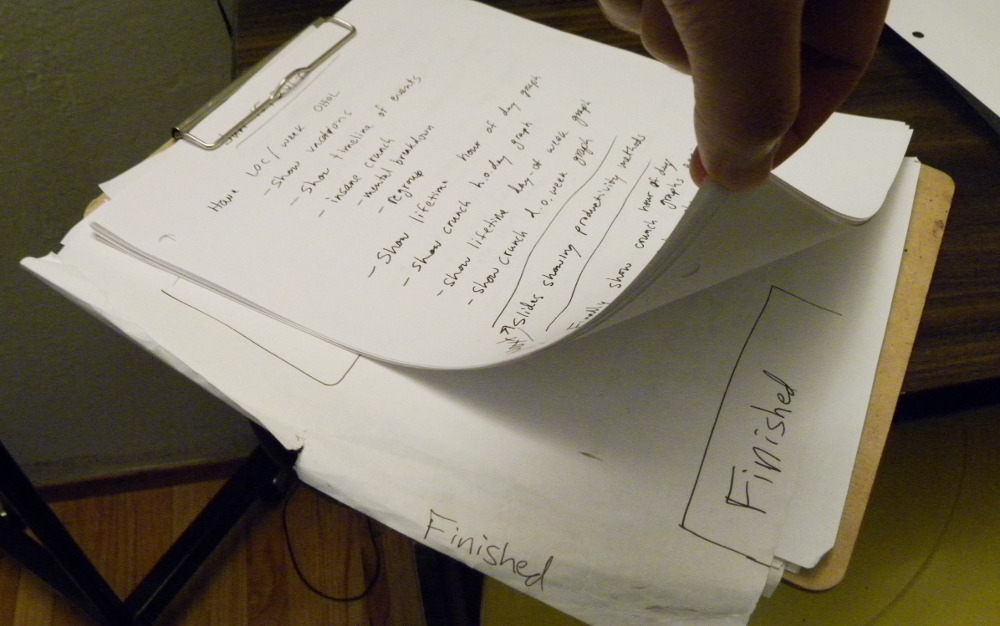 LOC/week OHOL
- show vacations
- show timeline of events
- insane crunch
- mental breakdown
- regroup
- Show lifetime hour of day graph
- show crunch h.o.day graph
- show lifetime day-of week graph
- show crunch d.o.week graph
Slides showing productivity methods
show crunch hour of day
graphs
Finished
Finished